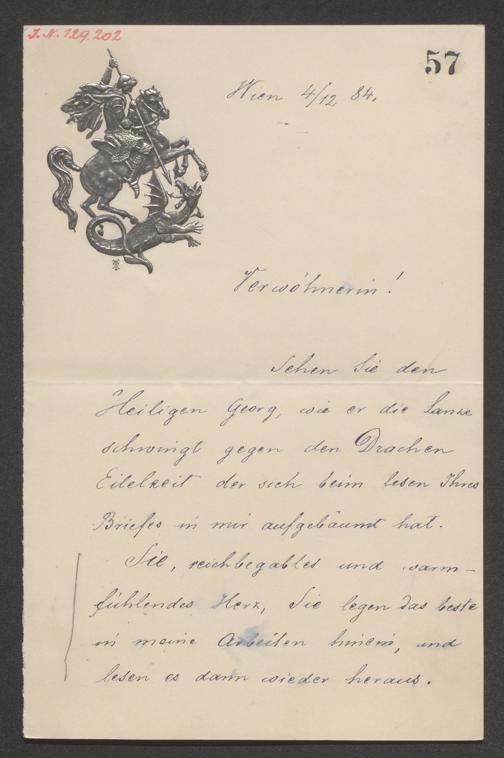 I.N. 129.202
57
Wien 4/12 84.
Verwöhnerin!
Sehen Sie den
Heiligen Georg, wie er die Lanze
schwingt gegen den Drachen
Eitelkeit der sich beim lesen Ihres
Briefes in mir aufgebäumt hat.
Sie, reichbegabtes und warm-
fühlendes Herz, Sie legen das beste
in meine Arbeiten hinein, und
lesen es dann wieder heraus.